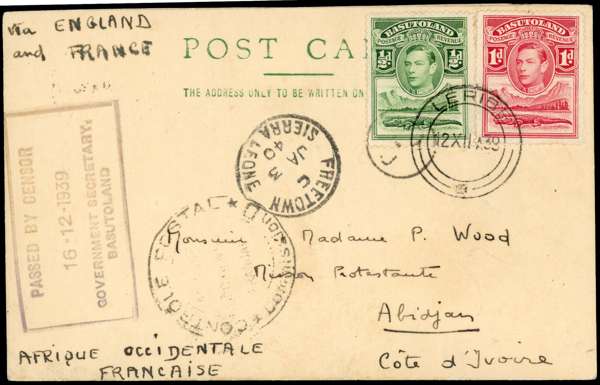 via ENGLAND
and FRANCE
POST CA
THE ADDRESS ONLY TO BE WRITTEN ON
½d BASUTOLAND ½d
POSTAGE REVENUE
1d BASUTOLAND 1d
POSTAGE REVENUE
LERIBE
12 XII 39
PASSED BY CENSOR
16-12-1939
GOVERNMENT SECRETARY,
BASUTOLAND
FREETOWN
C
3
JA
40
SIERRA LEONE
CONTRÔLE POSTAL
Monsieur Madame P. Wood
Mission Protestante
Abidjan
Côte d'Ivoire
AFRIQUE OCCIDENTALE
FRANCAISE